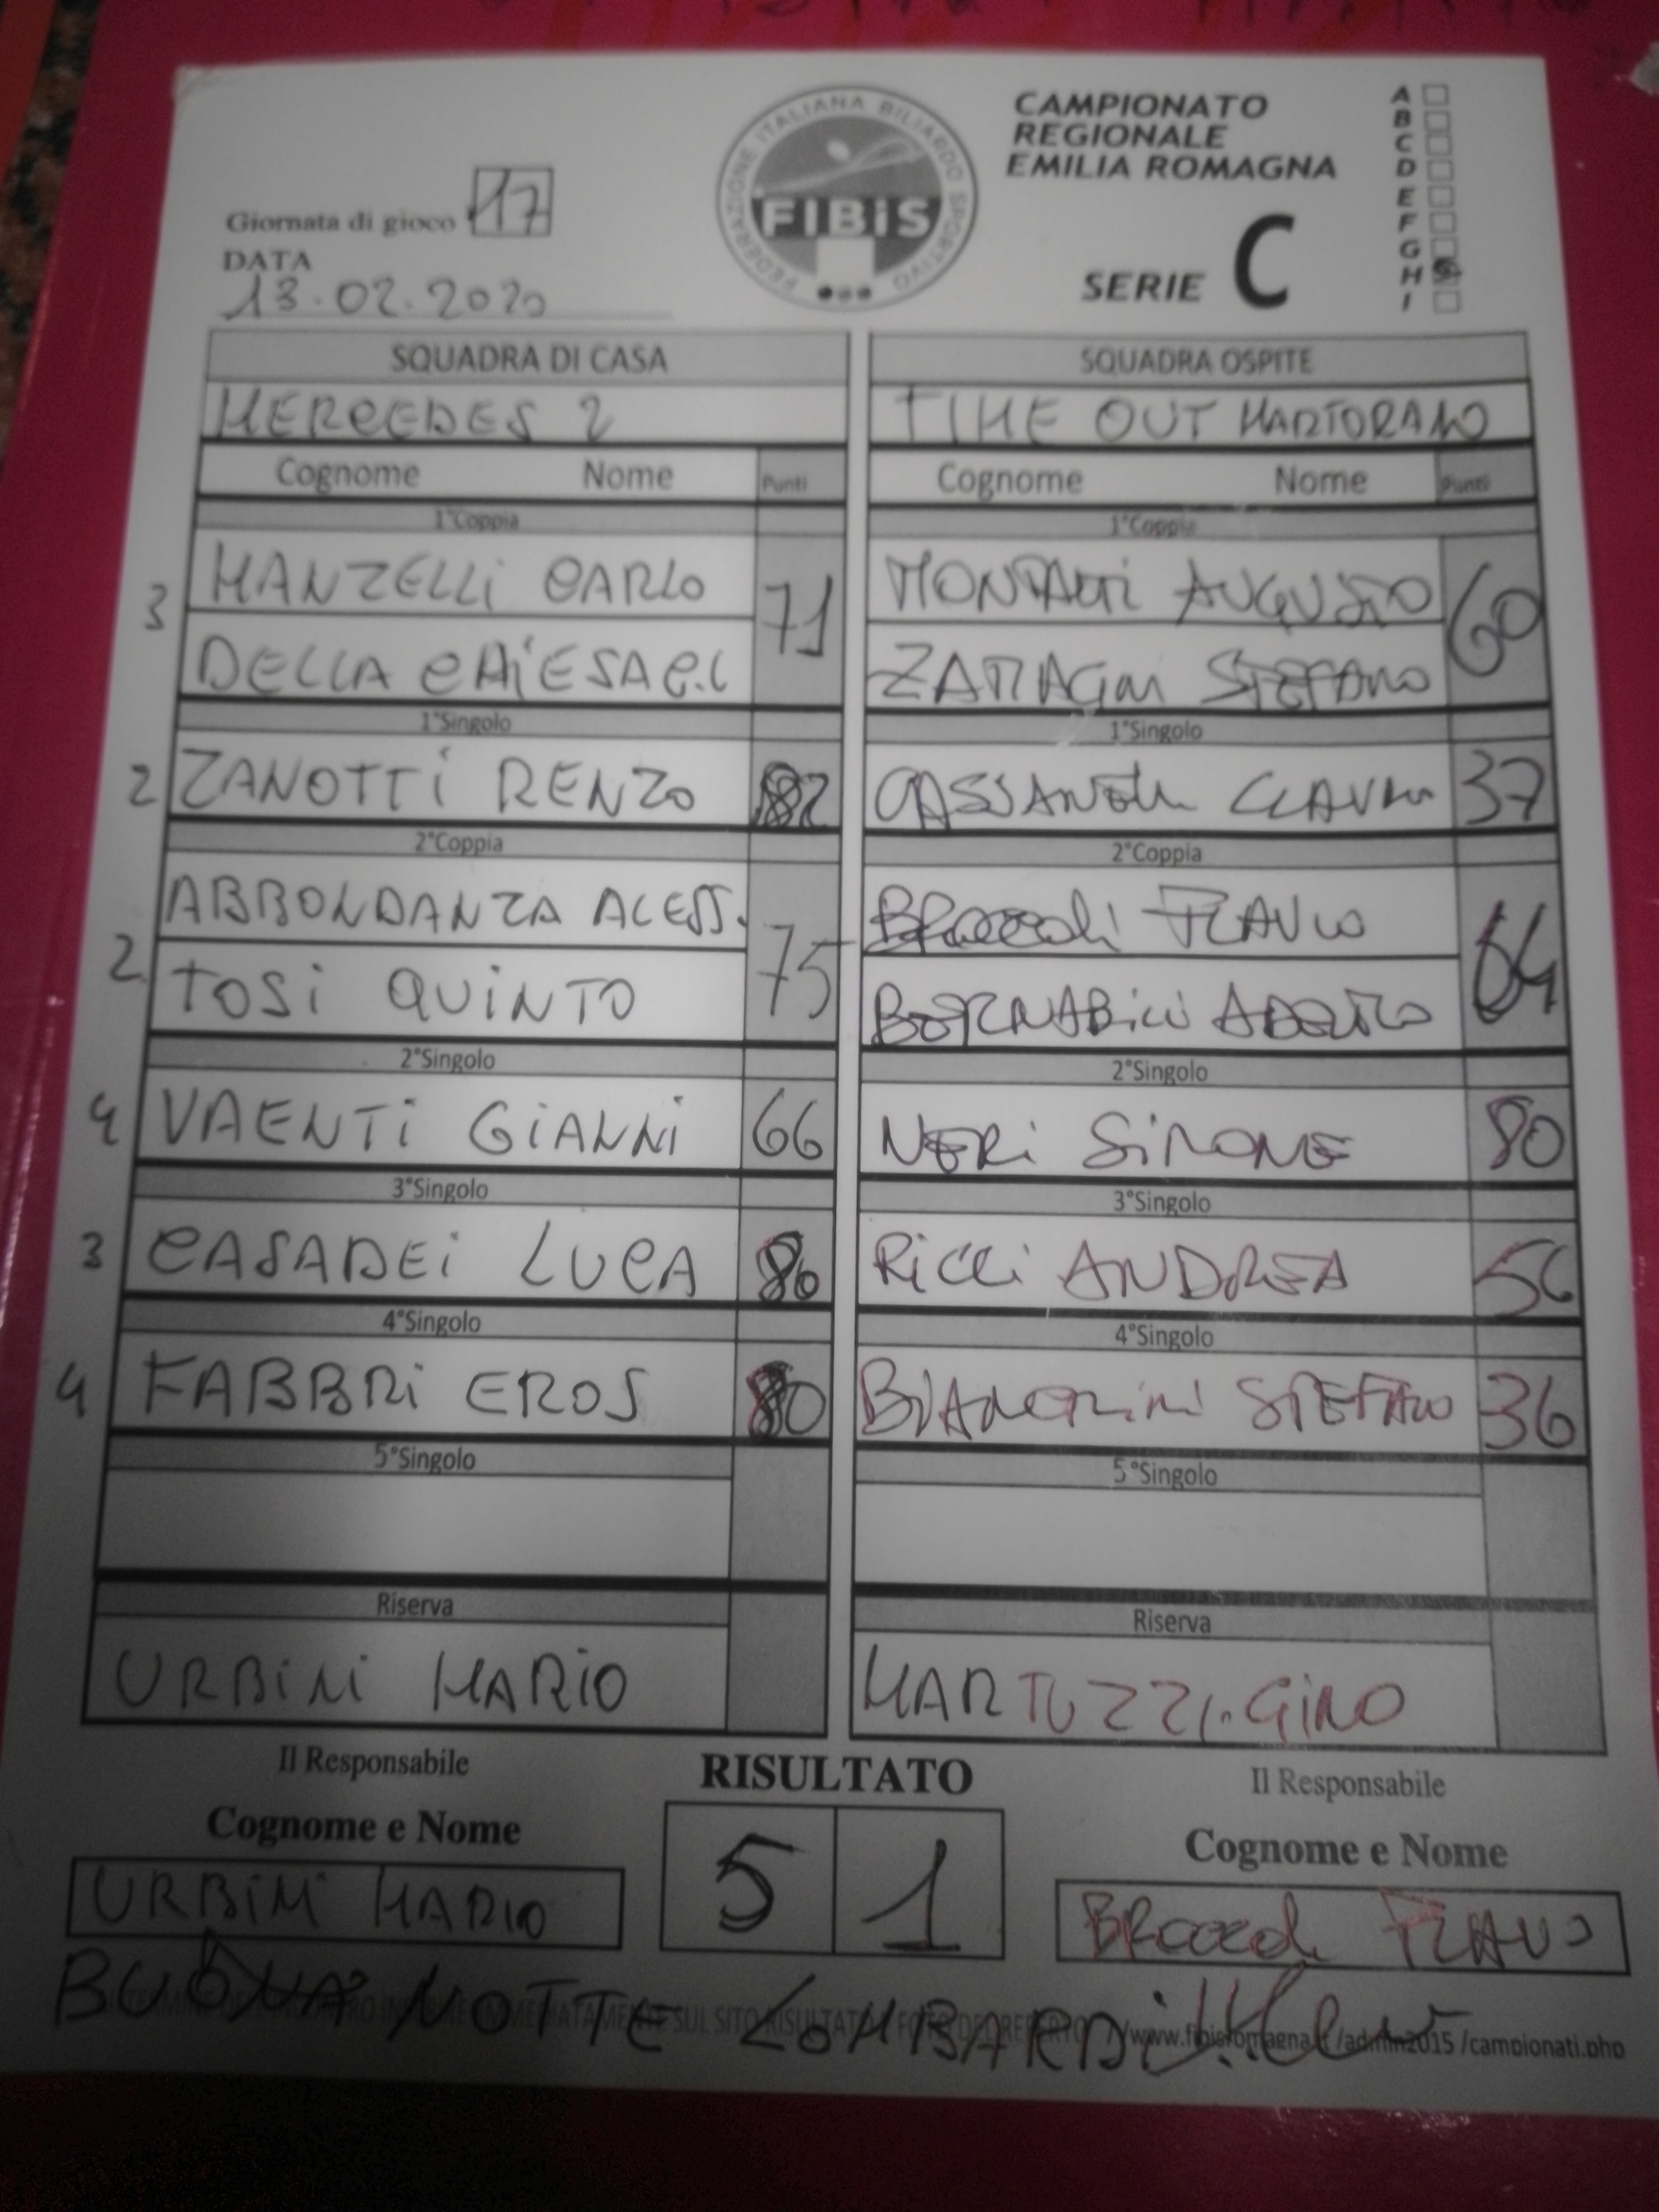 FEDERAZIONE ITALIANA BILIARDO SPORTIVO
FIBiS
CAMPIONATO
REGIONALE
EMILIA ROMAGNA
SERIE C
A
B
C
D
E
F
G
H
I
Giornata di gioco 17
DATA
13.02.2020
SQUADRA DI CASA
SQUADRA OSPITE
MERCEDES 2
TIME OUT MARTORANO
Cognome Nome Punti
Cognome Nome Punti
1°Coppia
1°Coppia
3 MANZELLi CARLO 71
MONTALTI AUGUSTO 60
DELLA CHiESA C.L
STEFANO
1°Singolo
1°Singolo
2 ZANOTTi RENZO 82
37
2°Coppia
2°Coppia
2 ABBONDANZA ALESS. 75
BRoccoli FLAVIO 64
TOSi QUiNTO
2°Singolo
2°Singolo
4 VAENTi GiANNi 66
NERi SiMONE 80
3°Singolo
3°Singolo
3 CASADEi LUCA 80
RiCCi ANDREA
4°Singolo
4°Singolo
4 FABBRi EROS 80
BIANCHiNi STEFANO 36
5°Singolo
5°Singolo
Riserva
Riserva
URBiNi MARiO
MARTUZZI.GiNO
Il Responsabile
RISULTATO
Il Responsabile
Cognome e Nome
5 1
Cognome e Nome
URBiNi MARIO
BRoccoli FLAVIO
BUONA NOTTE LOMBARDi
//www.fibisromagna.it /admin2015 /campionati.php